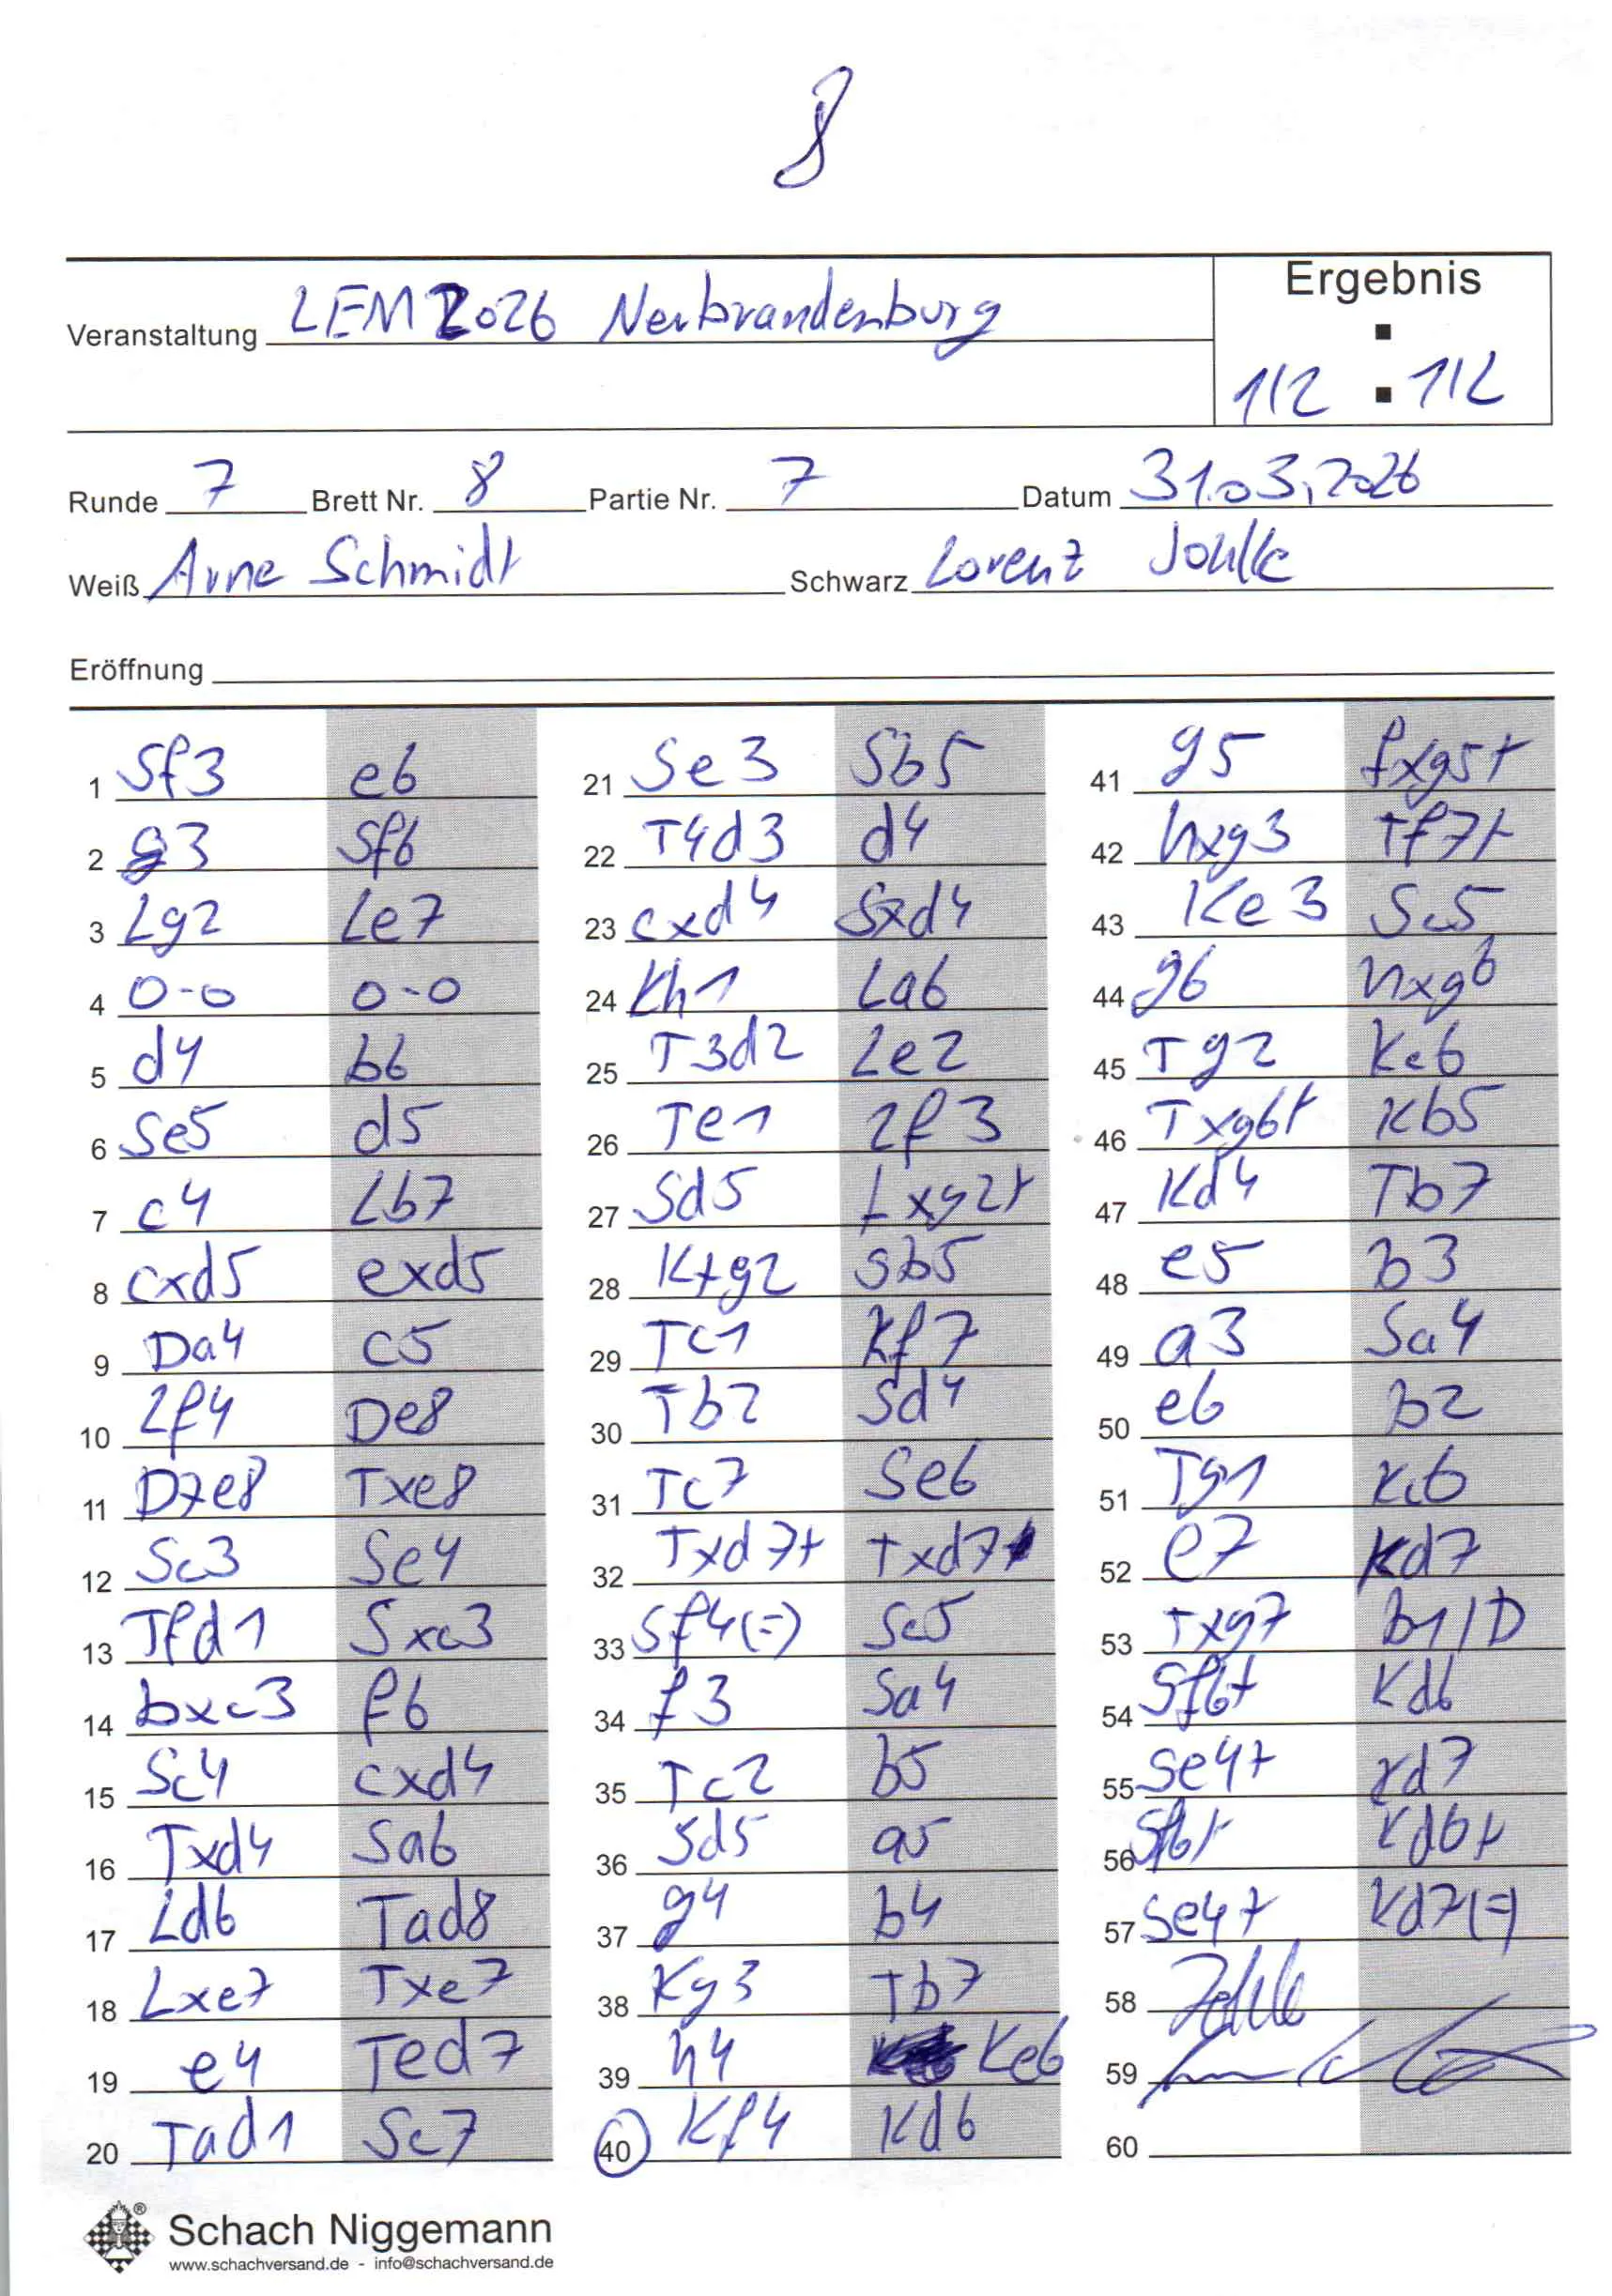 8
Ergebnis
Veranstaltung LEM 2026 Neubrandenburg
1/2 : 1/2
Runde 7 Brett Nr. 8 Partie Nr. 7 Datum 31.03.2026
Weiß Arne Schmidt Schwarz Lorenz
Eröffnung
1 Sf3 e6 21 Se3 Sb5 41 g5 fxg5+
2 g3 Sf6 22 T4d3 d4 42 hxg3 Tf7+
3 Lg2 Le7 23 cxd4 Sxd4 43 Ke3 Sc5
4 0-0 0-0 24 Kh1 La6 44 g6 hxg6
5 d4 b6 25 T3d2 Le2 45 Tg2 Kc6
6 Se5 d5 26 Te1 Lf3 46 Txg6+ Kb5
7 c4 Lb7 27 Sd5 Lxg2+ 47 Kd4 Tb7
8 cxd5 exd5 28 Kxg2 Sb5 48 e5 b3
9 Da4 c5 29 Tc1 Kf7 49 a3 Sa4
10 Lf4 De8 30 Tb2 Sd4 50 e6 b2
11 Dxe8 Txe8 31 Tc7 Se6 51 Tg1 Kc6
12 Sc3 Se4 32 Txd7+ Txd7 52 e7 Kd7
13 Tfd1 Sxc3 33 Sf4(=) Sc5 53 Txg7 b1/D
14 bxc3 f6 34 f3 Sa4 54 Sf6+ Kd6
15 Sc4 cxd4 35 Tc2 b5 55 Se4+ Kd7
16 Txd4 Sa6 36 Sd5 a5 56 Sf6+ Kd6+
17 Ld6 Tad8 37 g4 b4 57 Se4+ Kd7(=)
18 Lxe7 Txe7 38 Kg3 Tb7 58
19 e4 Ted7 39 h4 Ke6 59
20 Tad1 Sc7 40 Kf4 Kd6 60
Schach Niggemann
www.schachversand.de - info@schachversand.de